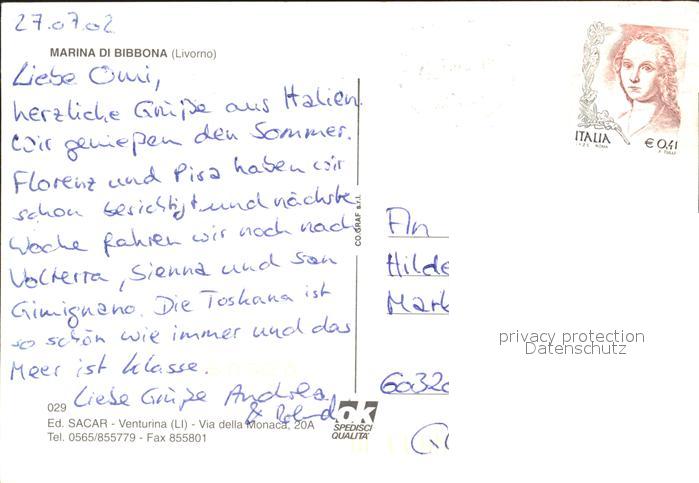 27.07.02
MARINA DI BIBBONA (Livorno)
Liebe Omi,
herzliche Grüße aus Italien.
Wir genießen den Sommer.
Florenz und Pisa haben wir
schon besichtigt und nächste
Woche fahren wir noch nach
Volterra, Sienna und San
Gimignano. Die Toskana ist
so schön wie immer und das
Meer ist klasse.
Liebe Grüße Andrea
& Roland
029
Ed. SACAR - Venturina (LI) - Via della Monaca, 20A
Tel. 0565/855779 - Fax 855801
CO.GRAF s.r.l.
ok
SPEDISCI
QUALITA'
ITALIA
€ 0,41
An
Hilde
Mark
6032
privacy protection
Datenschutz